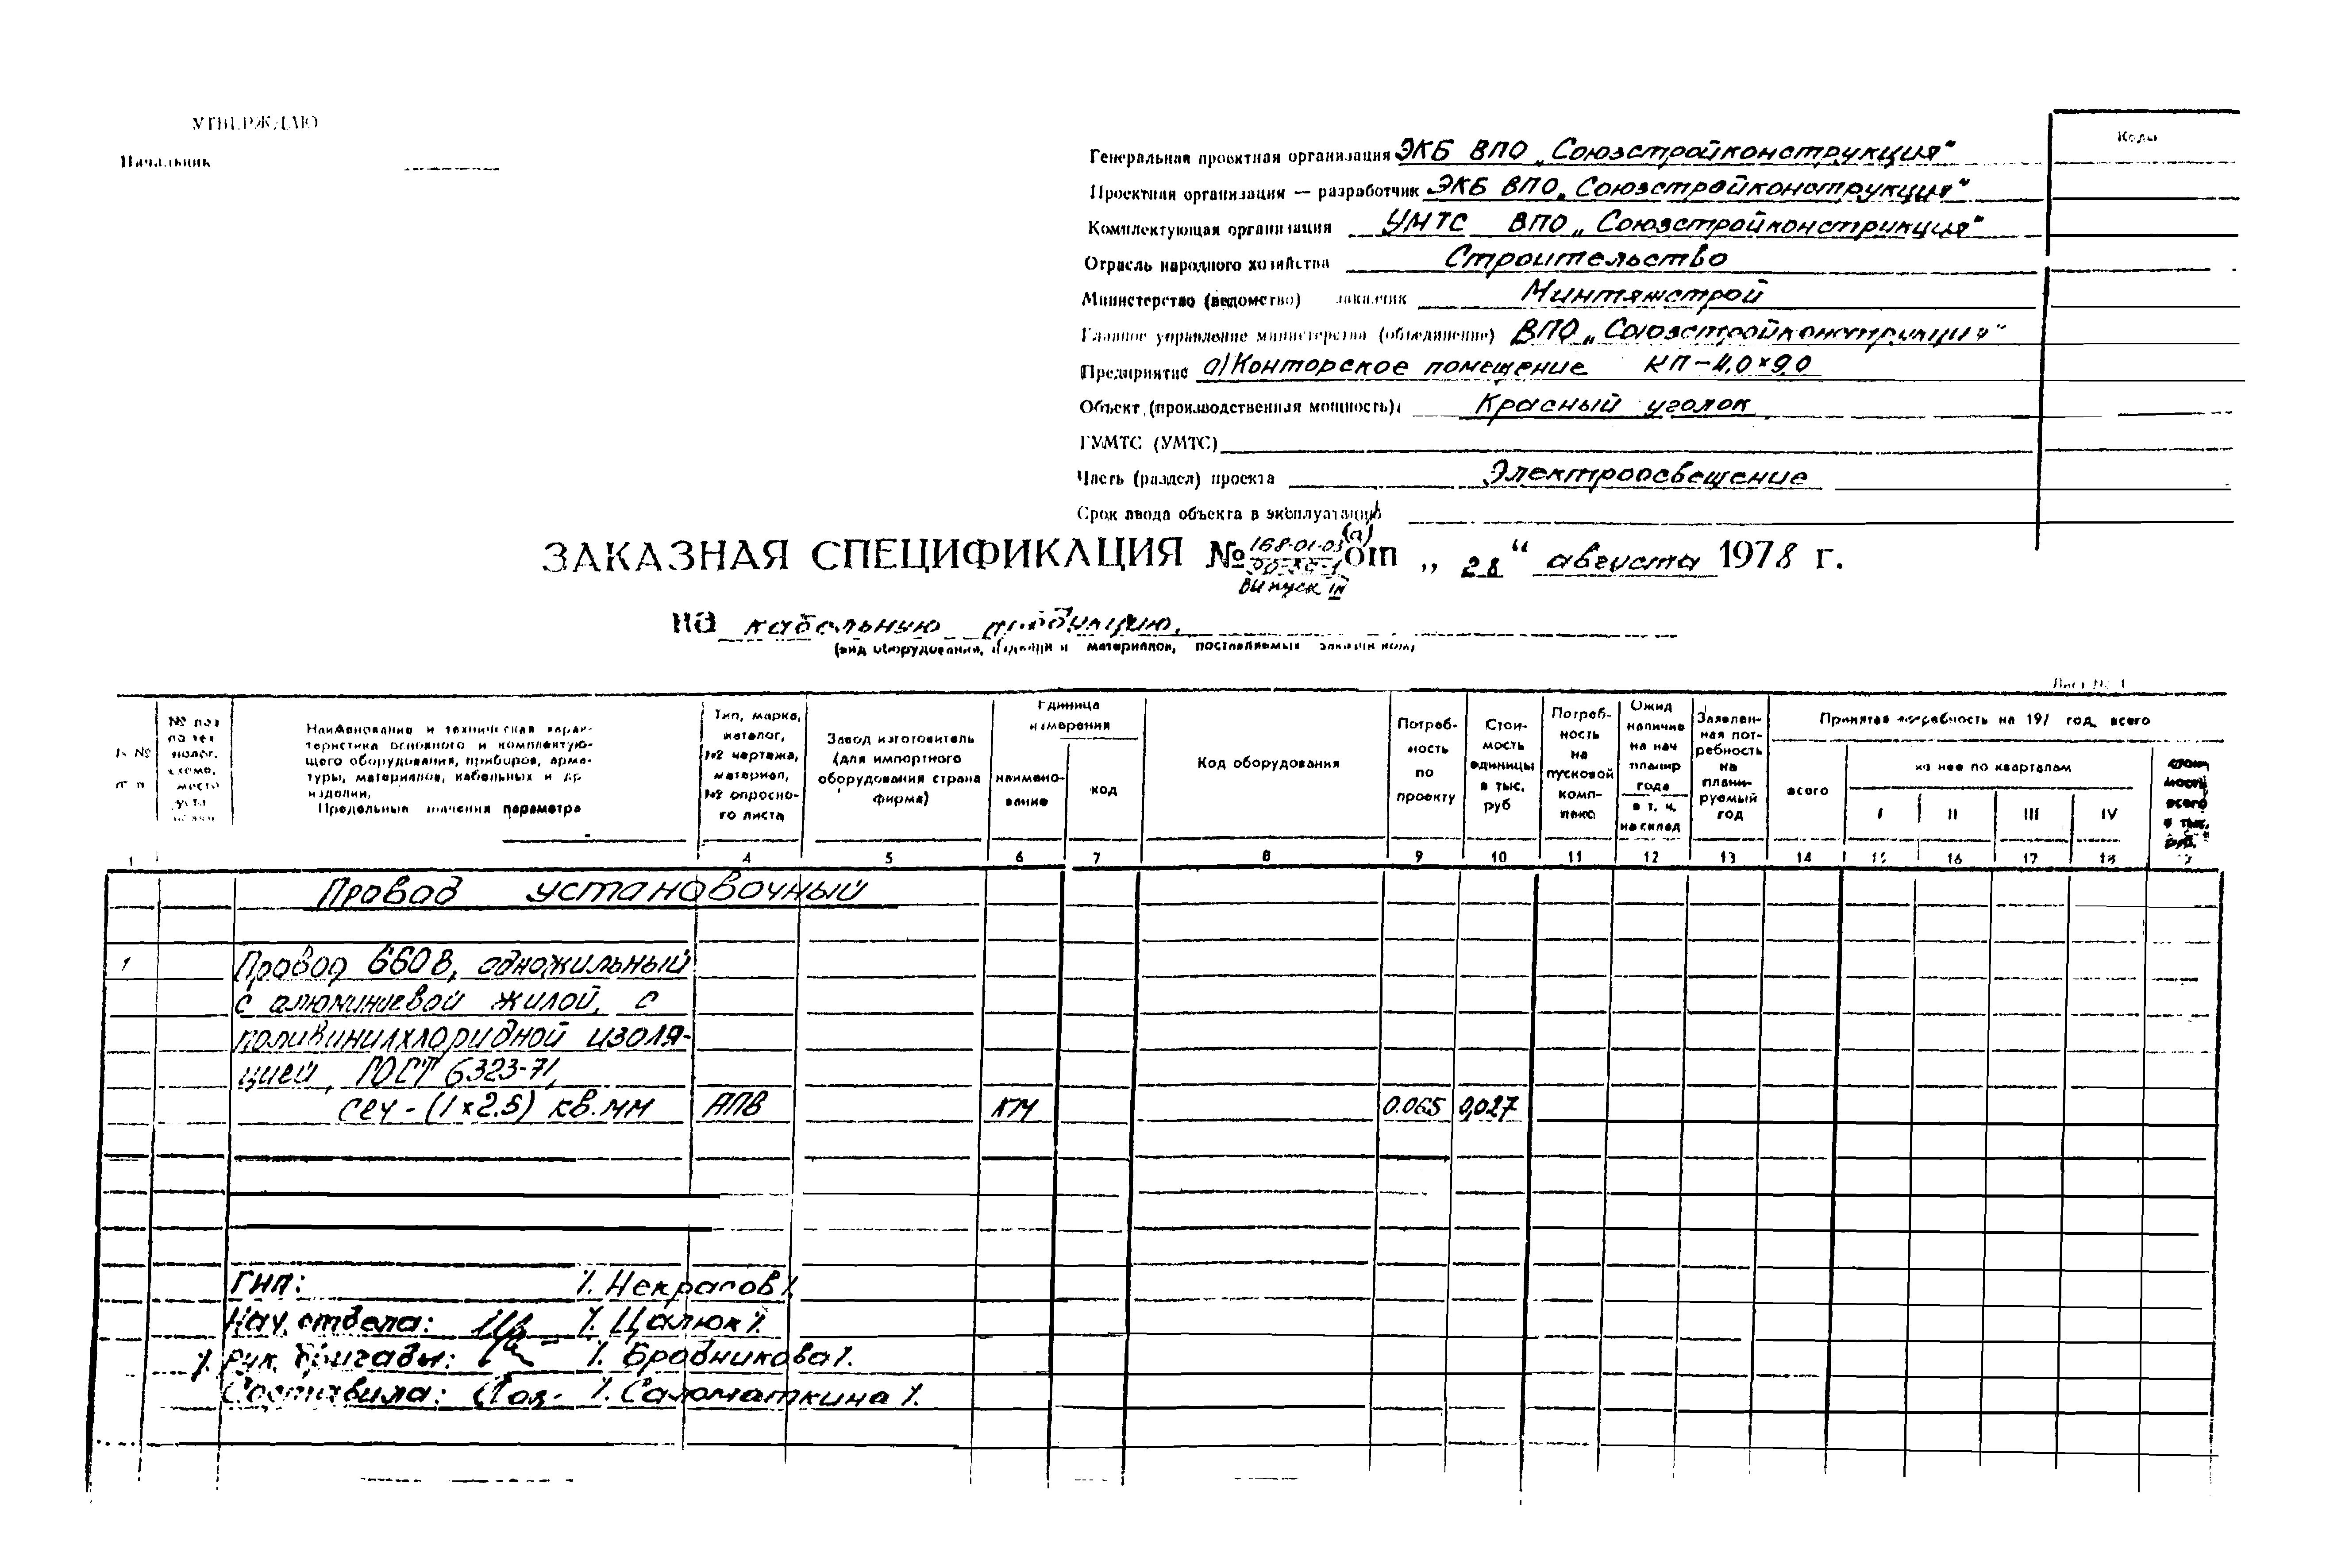 УТВЕРЖДАЮ
Начальник
Коды
Генеральная проектная организация ЭКБ ВПО „Союзстройконструкция"
Проектная организация — разработчик ЭКБ ВПО „Союзстройконструкция"
Комплектующая организация УМТС ВПО „Союзстройконструкция"
Отрасль народного хозяйства Строительство
Министерство (ведомство) заказчик Минтяжстрой
Главное управление министерства (объединение) ВПО „Союзстройконструкция"
Предприятие а) Конторское помещение КП-4,0×9,0
Объект (производственная мощность) Красный уголок
ГУМТС (УМТС)
Часть (раздел) проекта Электроосвещение
Срок ввода объекта в эксплуатацию
ЗАКАЗНАЯ СПЕЦИФИКАЦИЯ № 168-01-03 (а) от „28" августа 1978 г.
выпуск III
на кабельную продукцию,
(вид оборудования, изделий и материалов, поставляемых заказчиком)
Лист № 1
№ № п п
№ поз по тех нолог. схеме, место уста новки
Наименование и техническая харак-
теристика основного и комплектую-
щего оборудования, приборов, арма-
туры, материалов, кабельных и др
изделий.
Предельные значения параметра
Тип, марка, каталог, №? чертежа, материал, №? опросно- го листа
Завод изготовитель (для импортного оборудования страна фирма)
Единица измерения
наимено- вание
код
Код оборудования
Потреб- ность по проекту
Стои- мость единицы в тыс. руб
Потреб- ность на пусковой комп- лекс
Ожид наличие на нач планир года в т. ч. на склад
Заявлен- ная пот- ребность на плани- руемый год
Принятая потребность на 197 год, всего
всего
из нее по кварталам
I II III IV
стои мость всего в тыс. руб.
1 4 5 6 7 8 9 10 11 12 13 14 15 16 17 18 19
Провод установочный
1 Провод 660В, одножильный
с алюминиевой жилой, с
поливинилхлоридной изоля-
цией, ГОСТ 6323-71,
сеч - (1×2.5) кв.мм АПВ км 0.065 0,027
ГИП: /. Некрасов /.
Нач. отдела: /. Цалюк /.
/. Рук. бригады: /. Бродникова /.
Составила: /. Саломаткина /.